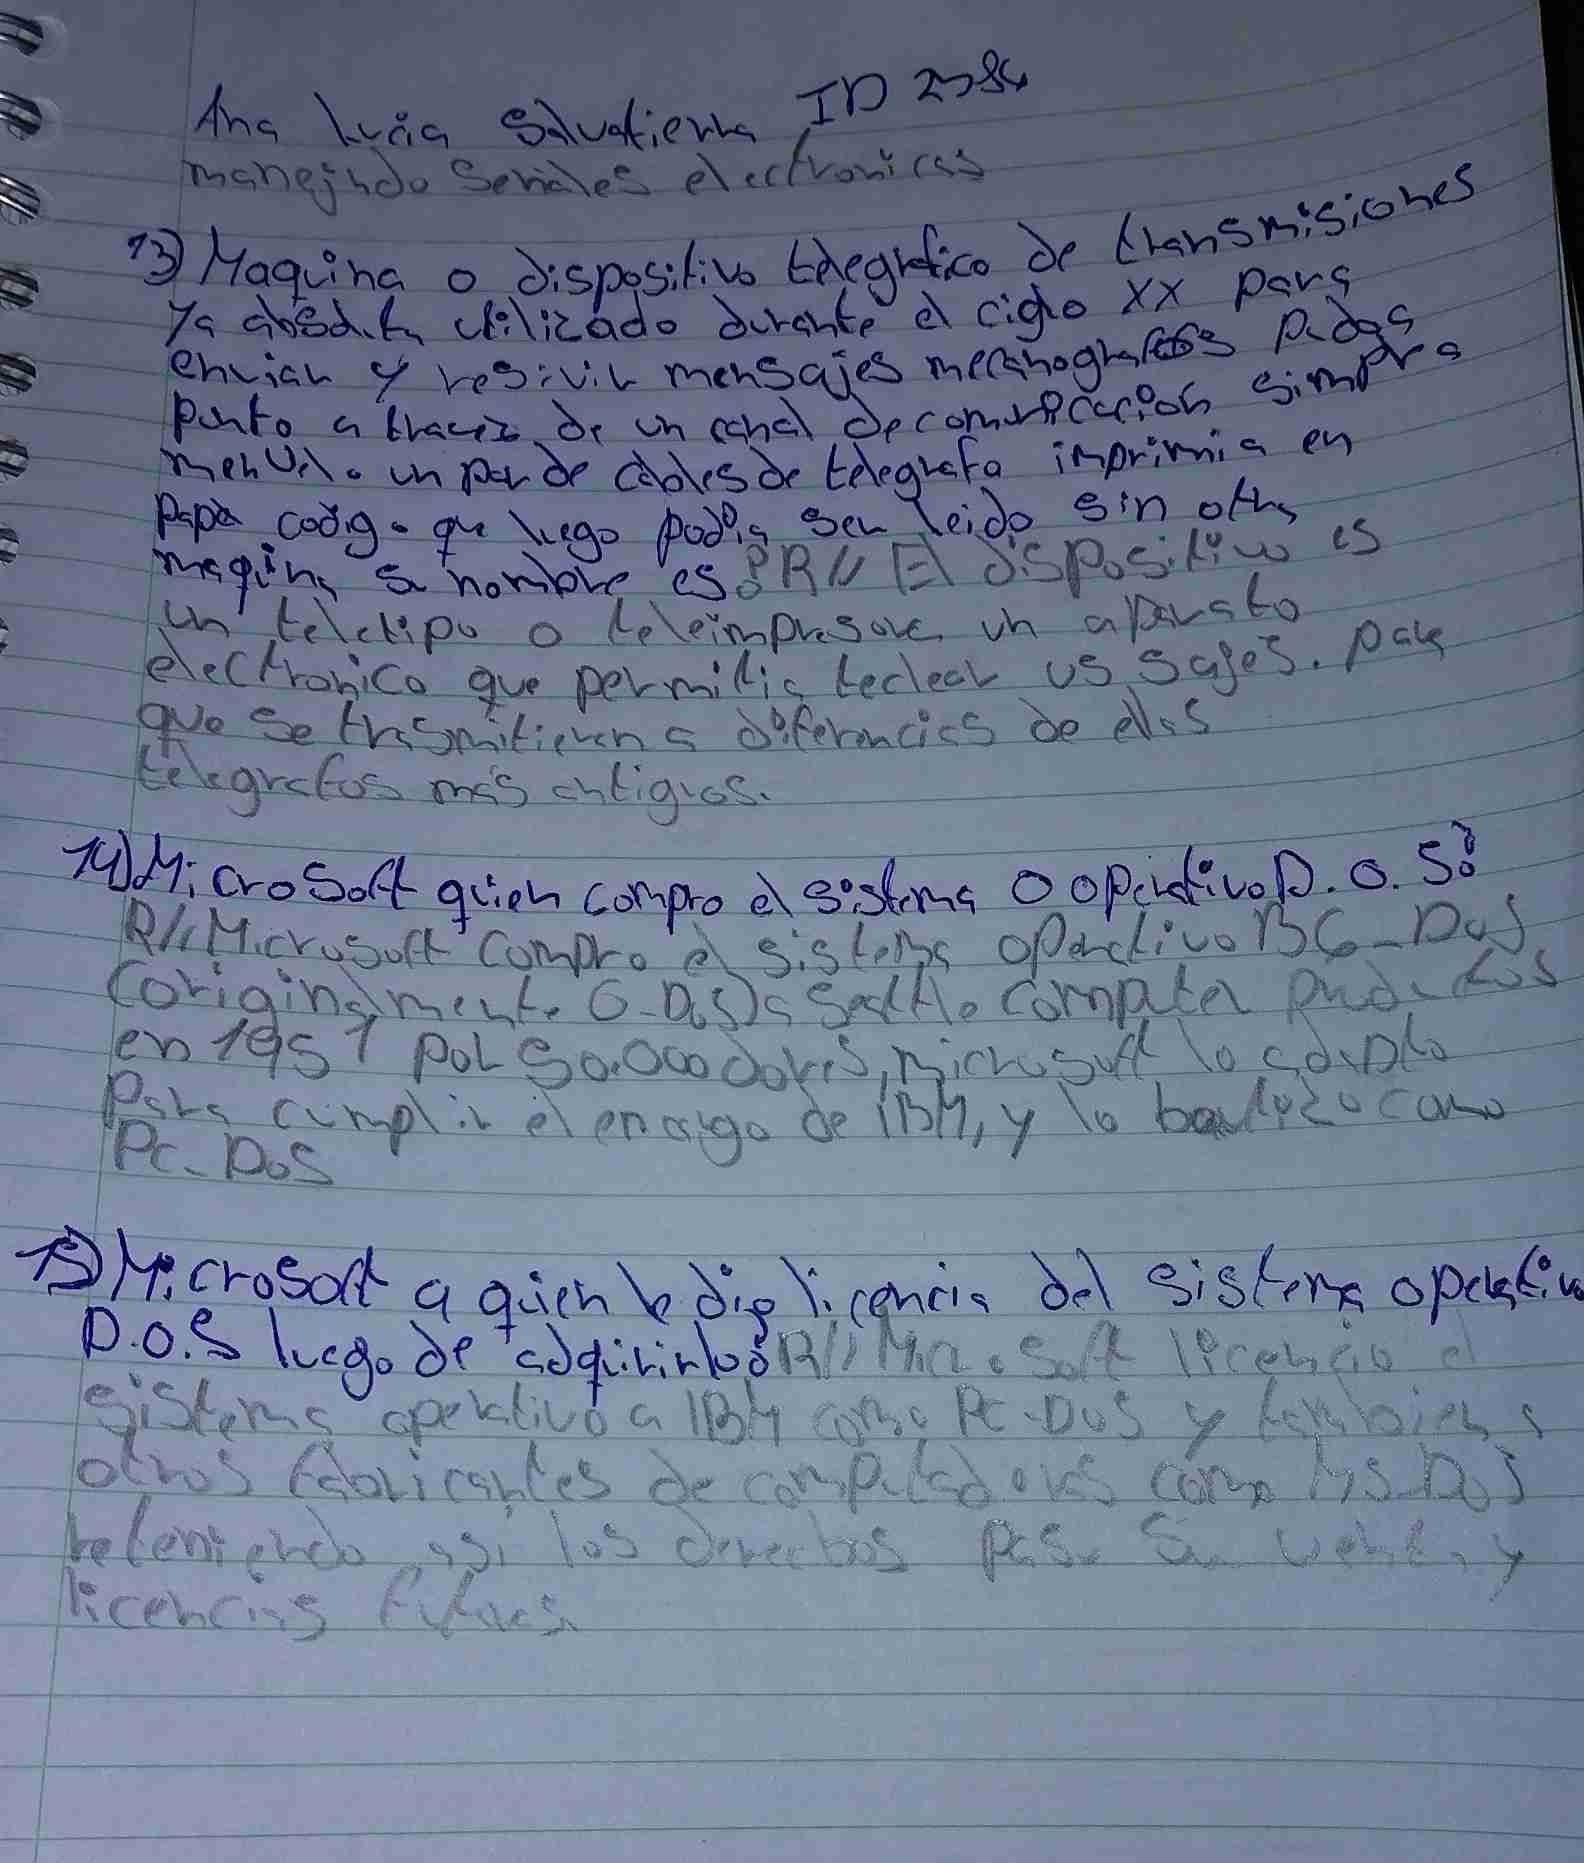 Ana Lucia Salvatierra ID 2384
manejndo Señales electronicas
13) Maquina o dispositivo telegrafico de transmisiones
Ya absolta utilizado durante el ciglo XX para
enviar y resivir mensajes mecanografos
punto a travez de un canal de comunicacion simpre
un par de cables de telegrafa imprimia en
papel codigo que luego podia ser leido sin otra
maquina su nombre es? R// El dispositivo es
un teletipo o teleimpresora un aparato
electronico que permitia teclear sajes. para
que se trasmitieran a diferencias de ellos
telegrafos más antiguos.
14) Microsoft quien compro el sistema O operativo D.O.S?
R// Microsoft compro el sistema operativo DOS
(originalmente Q-Dos) a Seattle computer productos
en 1981 por 50.000 dolares, microsoft lo adapto
Para cumplir el encargo de IBM, y lo bautizo como
Pc-Dos
15) Microsoft a quien le dio licencia del sistema operativo
D.O.S luego de adquirirlo? R// Microsoft licencio el
sistema operativo a IBM como Pc-Dos y tambien a
otros fabricantes de computadoras como MS-Dos
reteniendo asi los derechos para su venta y
licencias futuras.